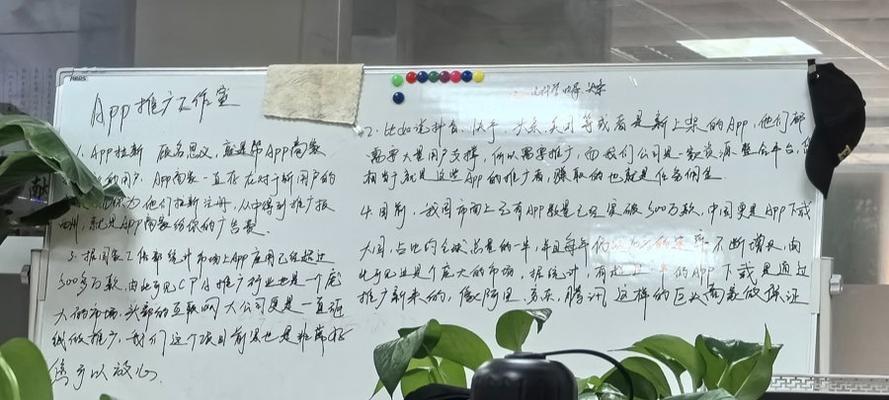 App推广工作室
1. App拉新 顾名思义，就是帮App商家
的用户，App商家一直存在对于新用户的
为他们拉新注册，从中得到推广报
酬，就是App商家给你的广告费。
3. 据国家工信部统计市场上App应用已经超过
300多万款，由此可见CPA推广行业也是一个庞
大的市场，头部的互联网大公司更是一直砸
钱做推广，我们这个项目前景也是非常好
您可以放心.
2. 比如说抖音、快手、头条、美团等或者是新上架的App，他们都
需要大量用户支撑，所以需要推广，而我们公司是一款资源整合平台，
相当于就是这些App的推广商，赚取的也就是任务佣金
4. 目前，我国市面上已有App数量已经突破300万款，中国更是App下载
大国，占比约全球总量的一半，并且每年仍 不断增长，由
此可见这是个庞大的市场，据统计，有 一半的App下载是通过
推广新来的，像阿里、京东、腾讯这样的巨头商家做保证